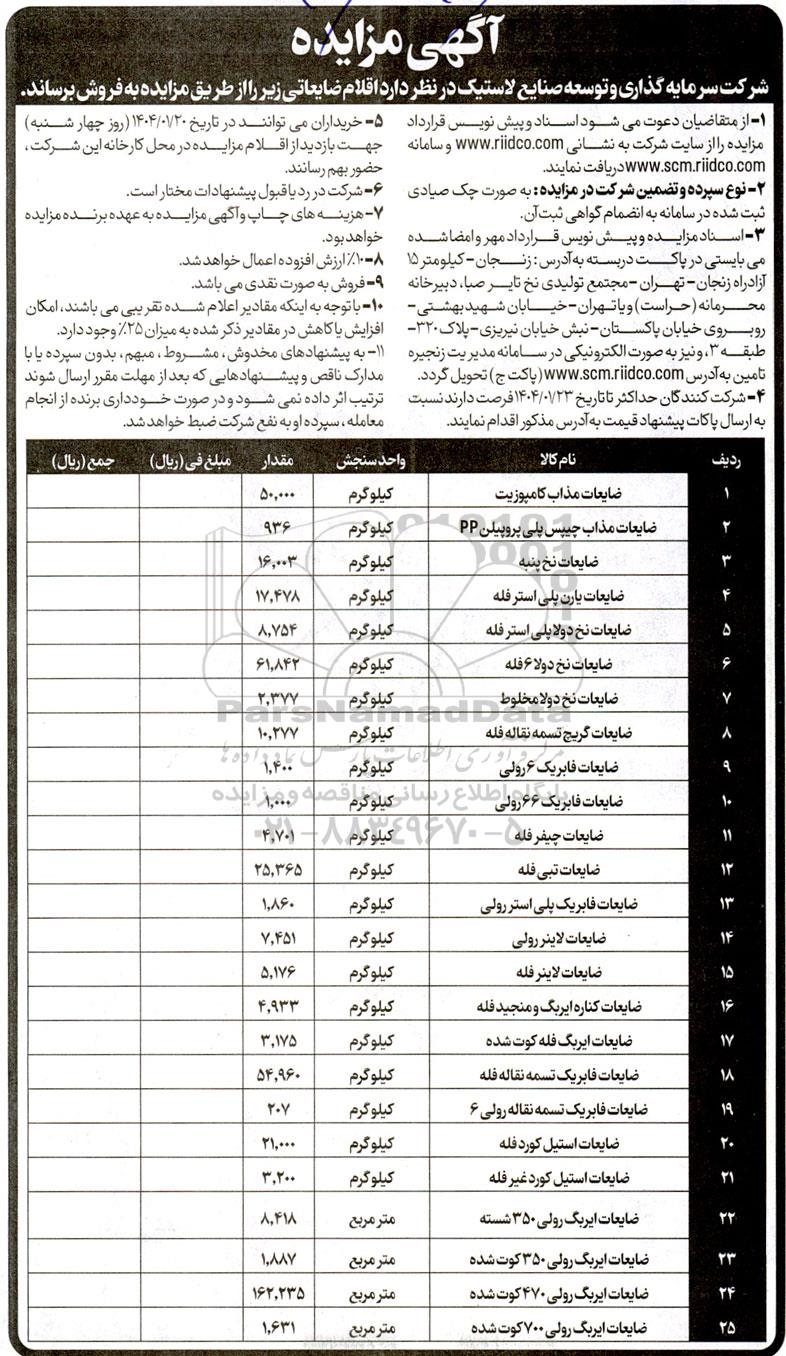 آگهی مزایده
شرکت سرمایه گذاری و توسعه صنایع لاستیک در نظر دارد اقلام ضایعاتی زیر را از طریق مزایده به فروش برساند.
۱- از متقاضیان دعوت می شود اسناد و پیش نویس قرارداد
مزایده را از سایت شرکت به نشانی www.riidco.com و سامانه
www.scm.riidco.com دریافت نمایند.
۲- نوع سپرده و تضمین شرکت در مزایده: به صورت چک صیادی
ثبت شده در سامانه به انضمام گواهی ثبت آن.
۳- اسناد مزایده و پیش نویس قرارداد مهر و امضا شده
می بایستی در پاکت دربسته به آدرس: زنجان - کیلومتر ۱۵
آزادراه زنجان - تهران - مجتمع تولیدی نخ تایر صبا، دبیرخانه
محرمانه (حراست) و یا تهران - خیابان شهید بهشتی -
روبروی خیابان پاکستان - نبش خیابان نیریزی - پلاک ۳۲۰-
طبقه ۳، و نیز به صورت الکترونیکی در سامانه مدیریت زنجیره
تامین به آدرس www.scm.riidco.com (پاکت ج) تحویل گردد.
۴- شرکت کنندگان حداکثر تا تاریخ ۱۴۰۴/۰۱/۲۳ فرصت دارند نسبت
به ارسال پاکات پیشنهاد قیمت به آدرس مذکور اقدام نمایند.
۵- خریداران می توانند در تاریخ ۱۴۰۴/۰۱/۲۰ (روز چهار شنبه)
جهت بازدید از اقلام مزایده در محل کارخانه این شرکت،
حضور بهم رسانند.
۶- شرکت در رد یا قبول پیشنهادات مختار است.
۷- هزینه های چاپ و آگهی مزایده به عهده برنده مزایده
خواهد بود.
۸- ۱۰٪ ارزش افزوده اعمال خواهد شد.
۹- فروش به صورت نقدی می باشد.
۱۰- با توجه به اینکه مقادیر اعلام شده تقریبی می باشند، امکان
افزایش یا کاهش در مقادیر ذکر شده به میزان ۲۵٪ وجود دارد.
۱۱- به پیشنهادهای مخدوش، مشروط، مبهم، بدون سپرده یا با
مدارک ناقص و پیشنهادهایی که بعد از مهلت مقرر ارسال شوند
ترتیب اثر داده نمی شود و در صورت خودداری برنده از انجام
معامله، سپرده او به نفع شرکت ضبط خواهد شد.
ردیف نام کالا واحد سنجش مقدار مبلغ فی (ریال) جمع (ریال)
۱ ضایعات مذاب کامپوزیت کیلوگرم ۵۰,۰۰۰
۲ ضایعات مذاب چیپس پلی پروپیلن PP کیلوگرم ۹۳۶
۳ ضایعات نخ پنبه کیلوگرم ۱۶,۰۰۳
۴ ضایعات یارن پلی استر فله کیلوگرم ۱۷,۴۷۸
۵ ضایعات نخ دولا پلی استر فله کیلوگرم ۸,۷۵۴
۶ ضایعات نخ دولا ۶ فله کیلوگرم ۶۱,۸۴۲
۷ ضایعات نخ دولا مخلوط کیلوگرم ۲,۳۷۷
۸ ضایعات گریج تسمه نقاله فله کیلوگرم ۱۰,۲۷۷
۹ ضایعات فابریک ۶ رولی کیلوگرم ۱,۴۰۰
۱۰ ضایعات فابریک ۶۶ رولی کیلوگرم ۱,۰۰۰
۱۱ ضایعات چیفر فله کیلوگرم ۴,۷۰۱
۱۲ ضایعات تبی فله کیلوگرم ۲۵,۳۶۵
۱۳ ضایعات فابریک پلی استر رولی کیلوگرم ۱,۸۶۰
۱۴ ضایعات لاینر رولی کیلوگرم ۷,۴۵۱
۱۵ ضایعات لاینر فله کیلوگرم ۵,۱۷۶
۱۶ ضایعات کناره ایربگ و منجید فله کیلوگرم ۴,۹۳۳
۱۷ ضایعات ایربگ فله کوت شده کیلوگرم ۳,۱۷۵
۱۸ ضایعات فابریک تسمه نقاله فله کیلوگرم ۵۴,۹۶۰
۱۹ ضایعات فابریک تسمه نقاله رولی ۶ کیلوگرم ۲۰۷
۲۰ ضایعات استیل کورد فله کیلوگرم ۲۱,۰۰۰
۲۱ ضایعات استیل کورد غیر فله کیلوگرم ۳,۲۰۰
۲۲ ضایعات ایربگ رولی ۳۵۰ شسته متر مربع ۸,۴۱۸
۲۳ ضایعات ایربگ رولی ۳۵۰ کوت شده متر مربع ۱,۸۸۷
۲۴ ضایعات ایربگ رولی ۴۷۰ کوت شده متر مربع ۱۶۲,۲۳۵
۲۵ ضایعات ایربگ رولی ۷۰۰ کوت شده متر مربع ۱,۶۳۱
ParsNamadData
مرکز فرآوری اطلاعات پارس نماد داده ها
پایگاه اطلاع رسانی مناقصه و مزایده
۰۲۱-۸۸۳۴۹۶۷۰-۵